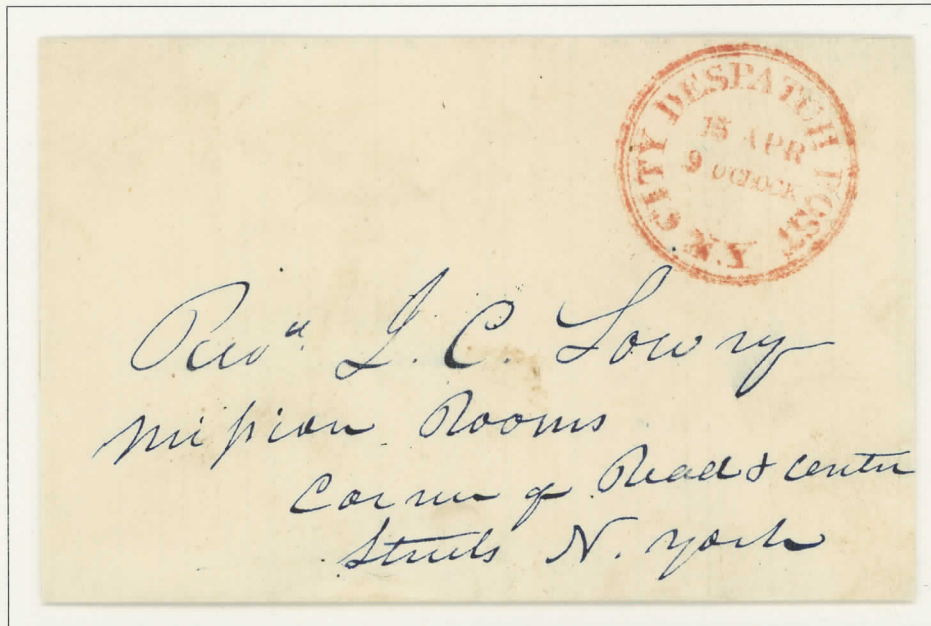 N.Y. CITY DESPATCH POST
15 APR
9 O'CLOCK
Revd. J. C. Lowry
Mission Rooms
Corner of Read & Centre
Streets N. York